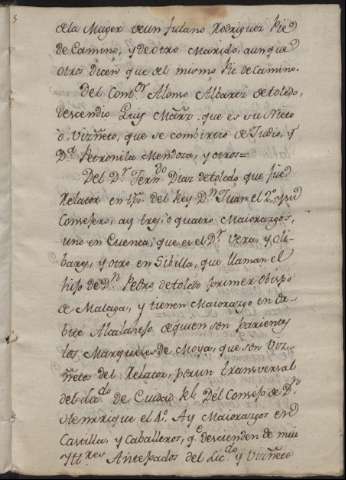 de la Muger de un fulano Rodriguez Pie
de Camino, y de otro Marido, aunque
otros Dicen que del mismo Pie de Camino.
Del Comb.r Alonso Albarez de toledo,
descendio Ruy Mart.z que es su Nieto
o Vizñeto, que se combirtio de Judio, y
D.ª Petronila Mendoza, y otros=
Del D.r Fern.do Diaz de toledo que fue
Relator en tpo. del Rey D.n Juan el 2.º, y su
Consejero, ay tres, o quatro Maiorazgos,
uno en Cuenca, que es el D.r Vera, y
y otro en Sibilla, que llaman el
hijo de D.n Pedro de toledo primer obispo
de Malaga, y tienen Maiorazgo en
de quien son parientes
los Marqueses de Moya, que son Viz-
ñetos del Relator, por un transversal
del L.do de Ciudad R.l Del Consejo de D.n
Henrrique el 4.º Ay Maiorazgos en
Casillas, y Caballeros, q.e descienden de
Antepasados del Lic.do y Vizñeto